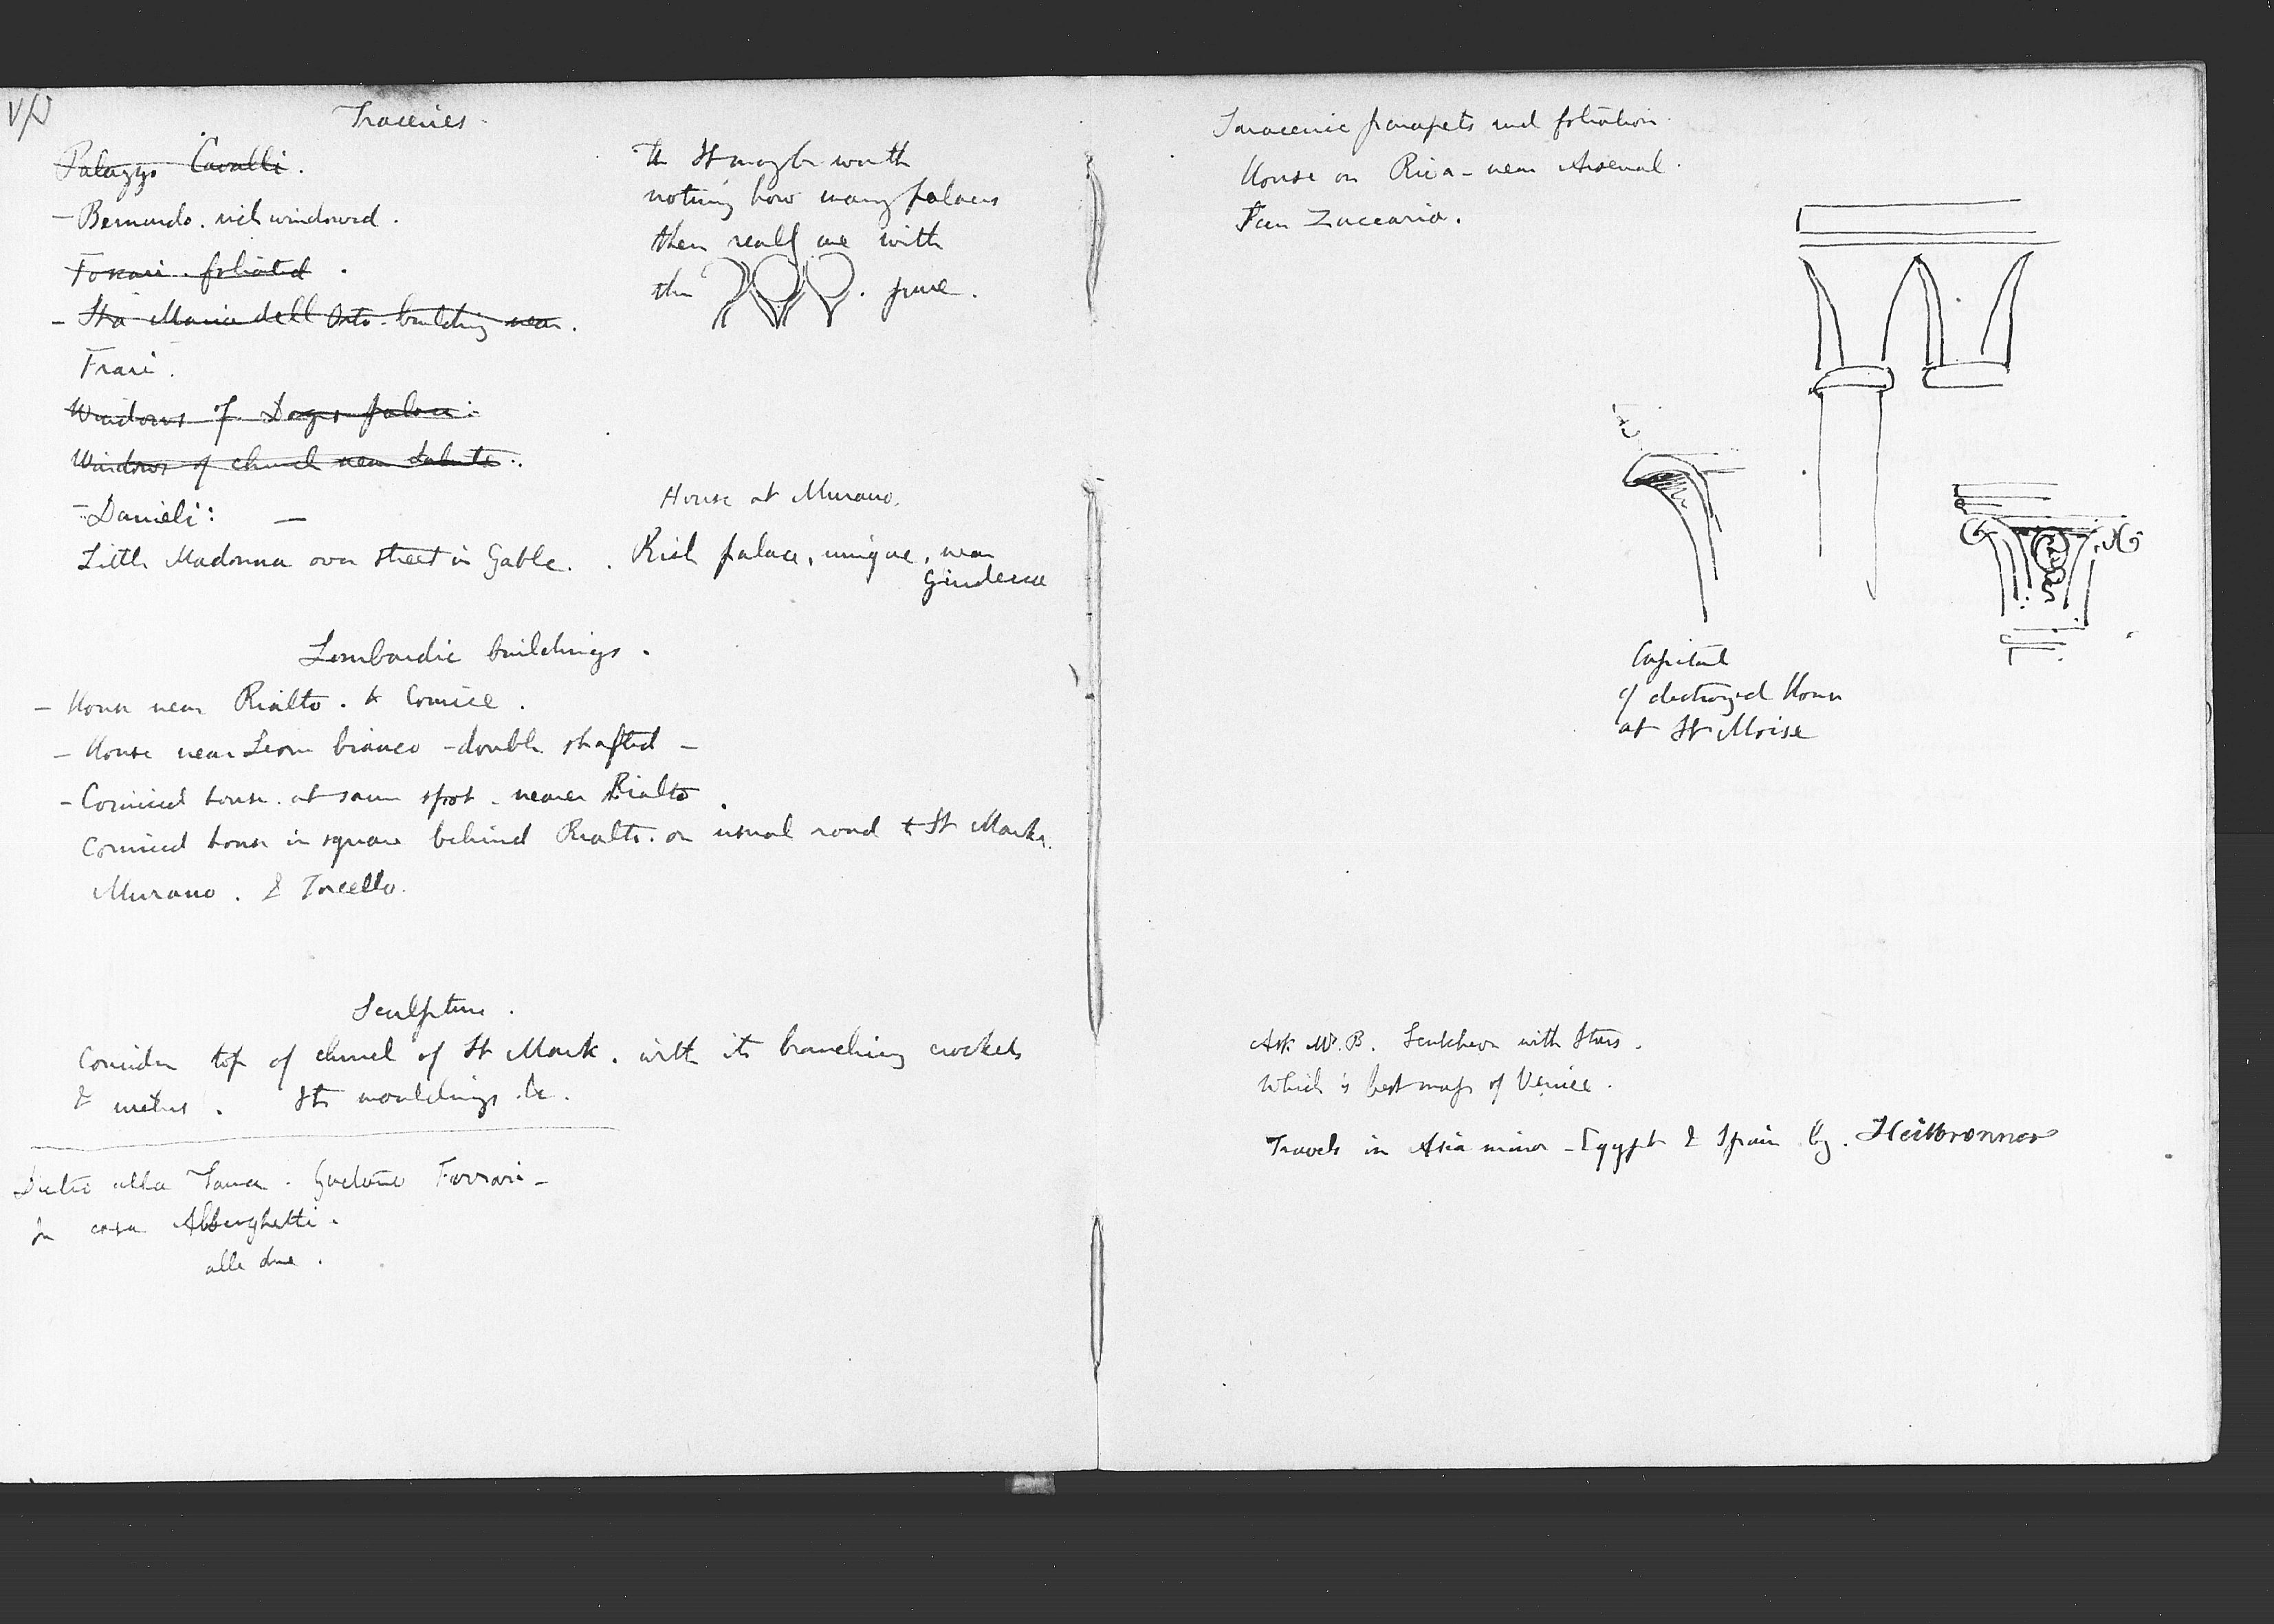 Traceries.
Palazzo Cavalli.
- Bernardo. rich windowed.
Foscari. foliated.
- Sta Maria dell Orto. building near.
Frari.
Windows of Doges palace.
Windows of church near Salute.
- Danieli: -
Little Madonna over street in Gable.
It may be worth
noting how many palaces
there really are with
the . pure.
House at Murano.
Rich palace, unique, near
Giudecca
Lombardic buildings.
- House near Rialto. & Cornice.
- House near Leone bianco - double shafted -
- Corniced house. at same spot. nearer Rialto.
Corniced house in square behind Rialto. on usual road to St Marks.
Murano. & Torcello.
Sculpture.
Consider top of church of St Mark. with its branching crockets
& niches. Its mouldings. &c.
Dietro alla Tana. Gaetano Ferrari -
In casa Alberghetti.
alle due.
Saracenic parapets and foliation.
House on Riva - near Arsenal.
San Zaccaria.
Capital
of destroyed House
at St Moise
Ask Mr. B. Scutcheon with Stars.
Which is best map of Venice.
Travels in Asia minor - Egypt & Spain by. Heilbronner